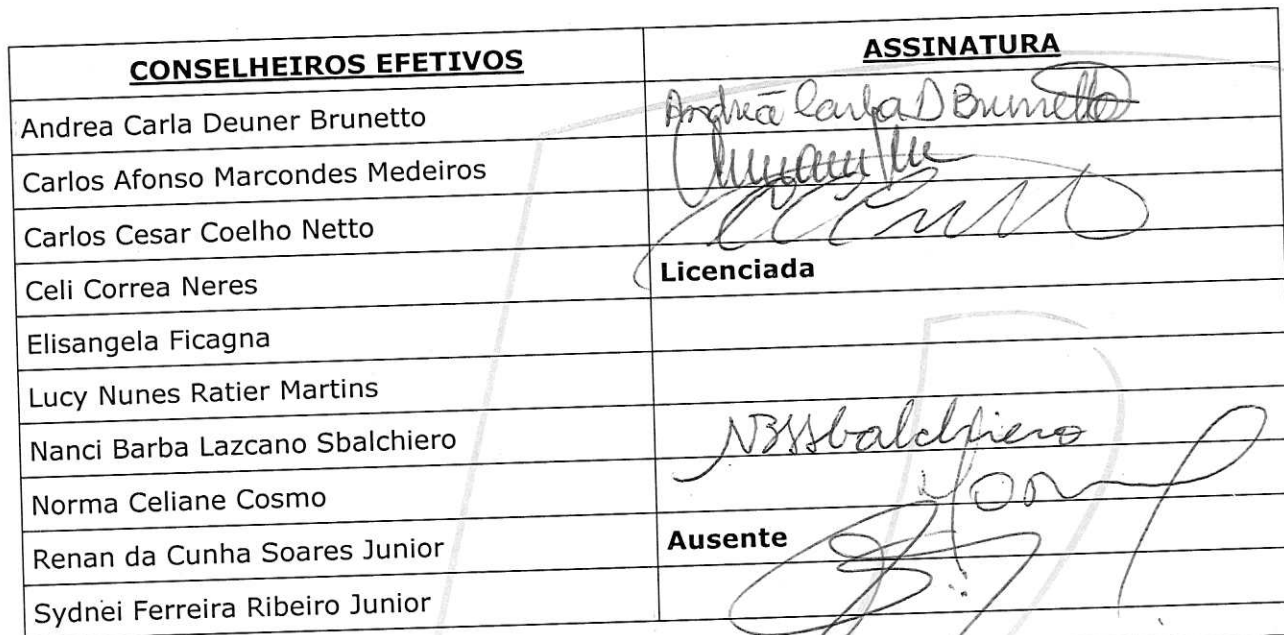 CONSELHEIROS EFETIVOS ASSINATURA
Andrea Carla Deuner Brunetto Andrea Carla D Brunetto
Carlos Afonso Marcondes Medeiros
Carlos Cesar Coelho Netto
Celi Correa Neres Licenciada
Elisangela Ficagna
Lucy Nunes Ratier Martins
Nanci Barba Lazcano Sbalchiero NBSbalchiero
Norma Celiane Cosmo
Renan da Cunha Soares Junior Ausente
Sydnei Ferreira Ribeiro Junior